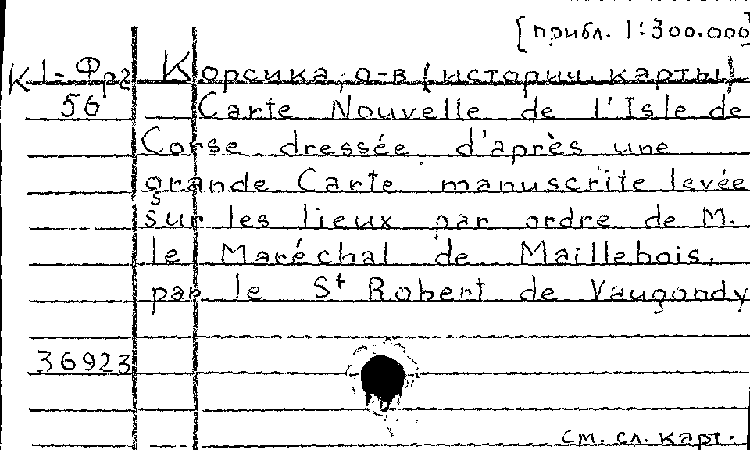 [прибл. 1:300.000]
К 1-Фрг Корсика, о-в (историч. карты)
56 Carte Nouvelle de l'Isle de
Corse dressée d'après une
grande Carte manuscrite levée
sur les lieux par ordre de M.
le Maréchal de Maillebois,
par le St Robert de Vaugondy
36923
см. сл. карт.